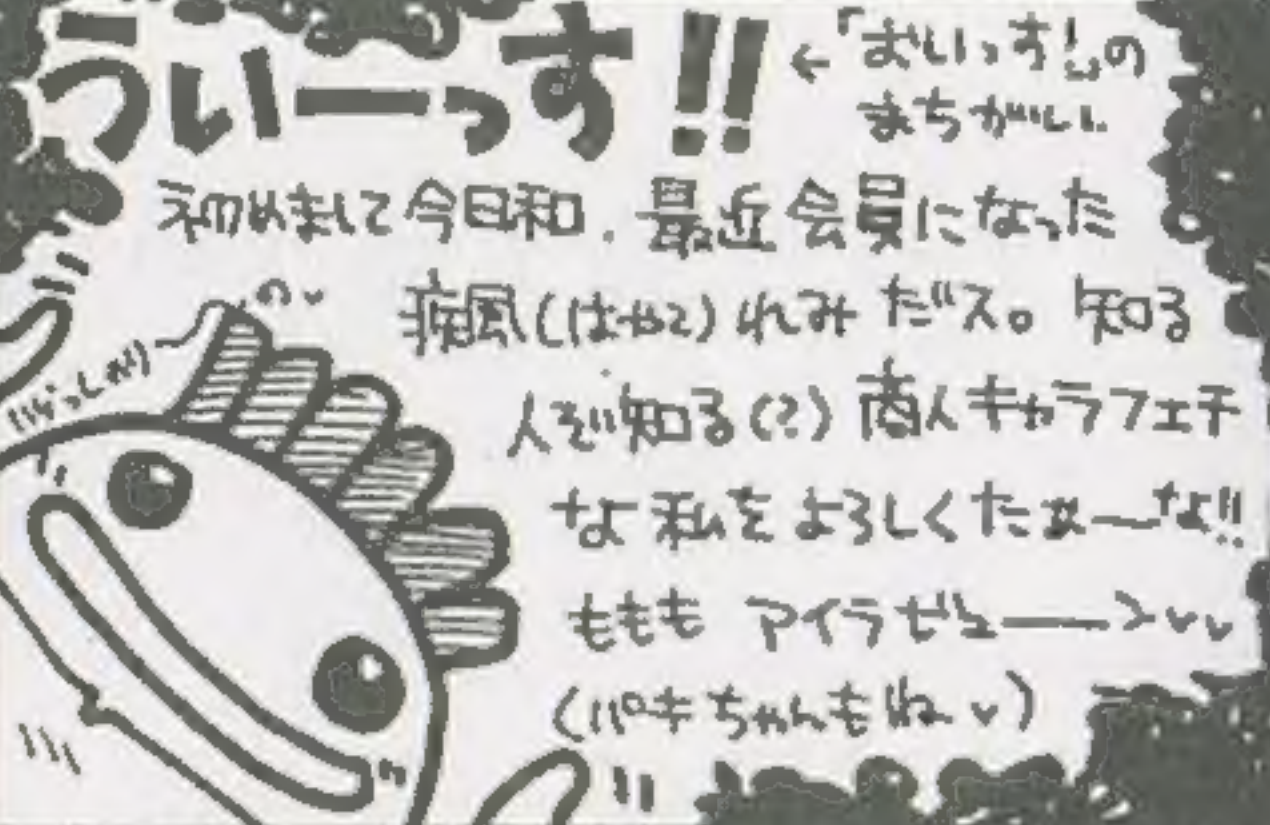 ういーっす!!
←「おいっす!」の
まちがい
初めまして今日和、最近会員になった
疾風(はやて)れみだス。知る
人ぞ知る(?)商人キャラフェチ
な私をよろしくたぁ〜な!!
ももも アイラゼぇ――――>♥♥
(パキちゃんもね♥)